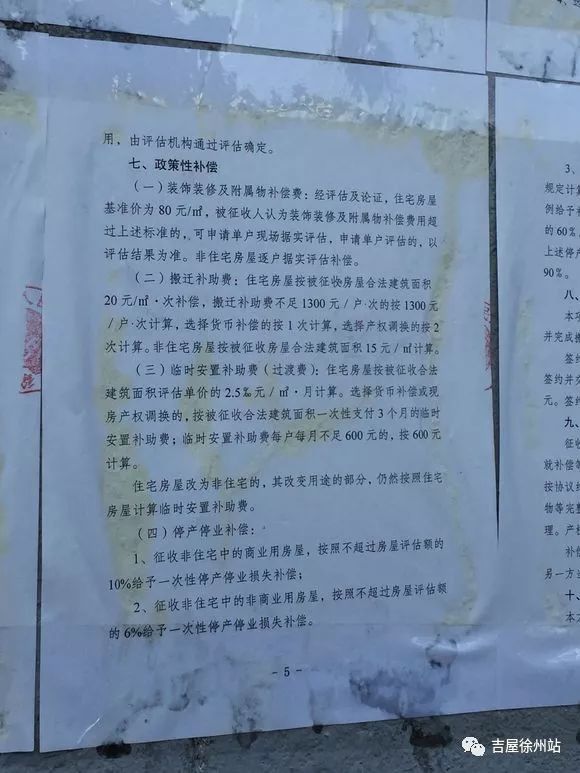 用，由评估机构通过评估确定。
七、政策性补偿
（一）装饰装修及附属物补偿费：经评估及论证，住宅房屋
基准价为 80 元/㎡，被征收人认为装饰装修及附属物补偿费用超
过上述标准的，可申请单户现场据实评估，申请单户评估的，以
评估结果为准。非住宅房屋逐户据实评估补偿。
（二）搬迁补助费：住宅房屋按被征收房屋合法建筑面积
20 元/㎡·次补偿，搬迁补助费不足 1300 元／户·次的按 1300 元
／户·次计算，选择货币补偿的按 1 次计算，选择产权调换的按 2
次计算。非住宅房屋按被征收房屋合法建筑面积 15 元／㎡计算。
（三）临时安置补助费（过渡费）：住宅房屋按被征收合法
建筑面积评估单价的 2.5‰元／㎡·月计算。选择货币补偿或现
房产权调换的，按被征收合法建筑面积一次性支付 3 个月的临时
安置补助费；临时安置补助费每户每月不足 600 元的，按 600 元
计算。
住宅房屋改为非住宅的，其改变用途的部分，仍然按照住宅
房屋计算临时安置补助费。
（四）停产停业补偿：
1、征收非住宅中的商业用房屋，按照不超过房屋评估额的
10%给予一次性停产停业损失补偿；
2、征收非住宅中的非商业用房屋，按照不超过房屋评估额
的 6%给予一次性停产停业损失补偿。
- 5 -
3、
规定计算
例给予补
的 60%
上述停产
90%。
八、
本项
并完成搬
签约
签约并交
元。签约
九、
征收
就补偿
按协议约
物等完整
理。产权
补偿
另一方
十、
本方
吉屋徐州站